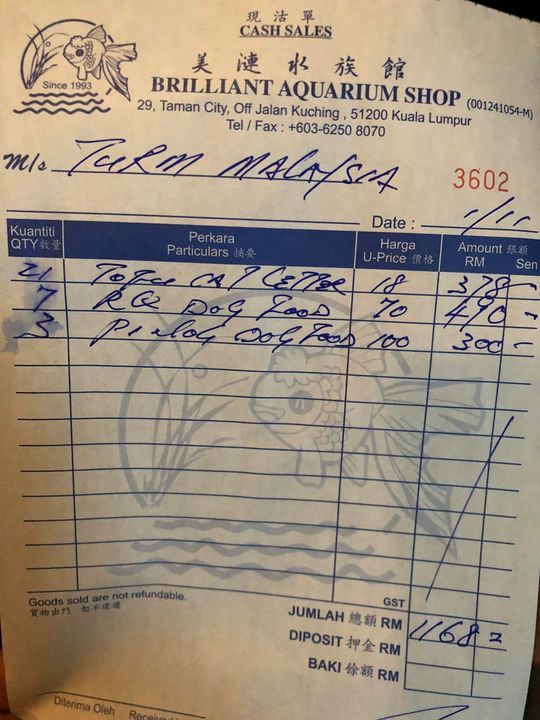 現沽單
CASH SALES
Since 1993
美漣水族館
BRILLIANT AQUARIUM SHOP (001241054-M)
29, Taman City, Off Jalan Kuching , 51200 Kuala Lumpur
Tel / Fax : +603-6250 8070
M/s TURM MALAYSIA
3602
Date : 1/11
Kuantiti Perkara Harga Amount 銀額
QTY 數量 Particulars 摘要 U-Price 價格 RM Sen
21 TOFU CAT LITTER 18 378 -
7 DOG FOOD 70 490 -
3 DOG FOOD 100 300 -
Goods sold are not refundable.
貨物出門 恕不退還
GST
JUMLAH 總額 RM 1168 =
DIPOSIT 押金 RM
BAKI 餘額 RM
Diterima Oleh Received